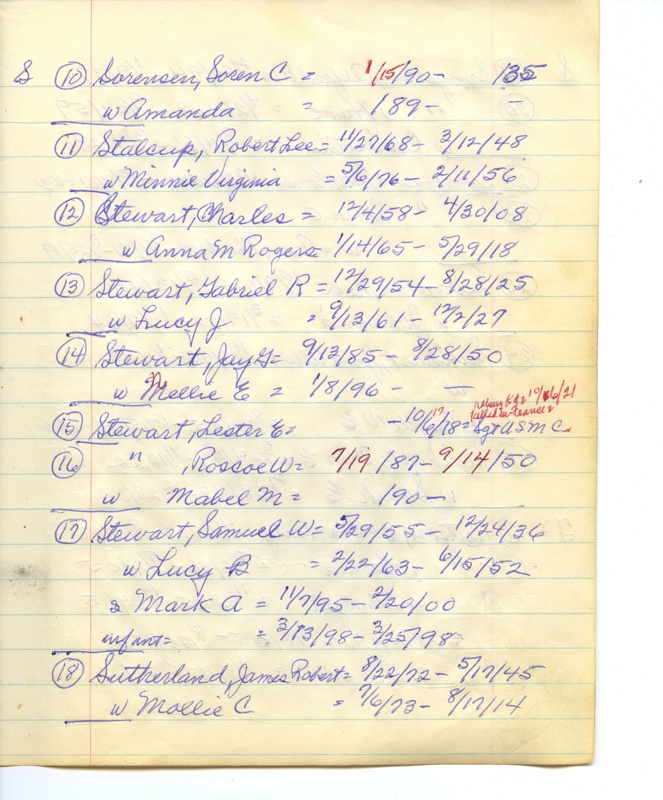 S (10) Sorensen, Soren C = 1/15/90- 135
w Amanda = 189- -
(11) Stalcup, Robert Lee= 11/27/68- 3/12/48
w Minnie Virginia = 5/6/76- 2/11/56
(12) Stewart, Charles = 12/4/58- 4/30/08
w Anna M Rogers= 1/14/65- 5/29/18
(13) Stewart, Gabriel R = 12/29/54-8/28/25
w Lucy J = 9/13/61- 12/2/27
(14) Stewart, Jay G= 9/12/85- 8/28/50
w Mellie E = 1/8/96- -
10/16/21
killed in France
(15) Stewart, Lester E= -10/6/18= Sgt USMC
(16) " , Roscoe W= 7/19/87- 9/14/50
w Mabel M= 190-
(17) Stewart, Samuel W= 5/29/55- 12/24/36
w Lucy B = 2/22/63- 6/15/52
s Mark A = 11/7/95- 2/20/00
infant= = 3/13/98- 3/25/98
(18) Sutherland, James Robert= 8/22/72- 5/17/45
w Mollie C = 7/6/73- 8/17/14